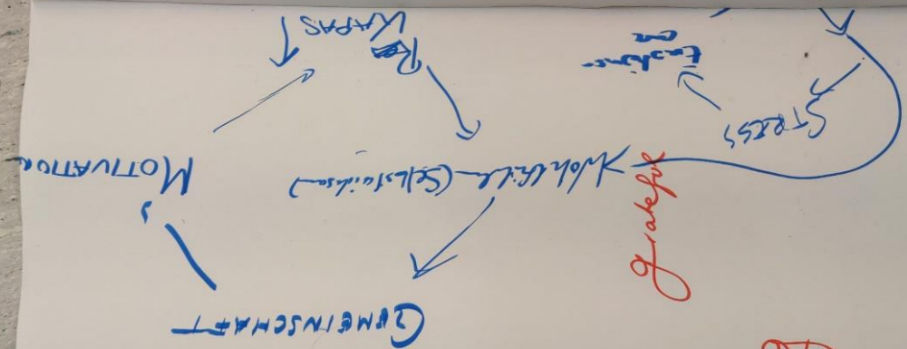 GEMEINSCHAFT
MOTIVATION
Wohlfühl (Selbstwirksam)
STRESS
KAPAS ↑
grateful